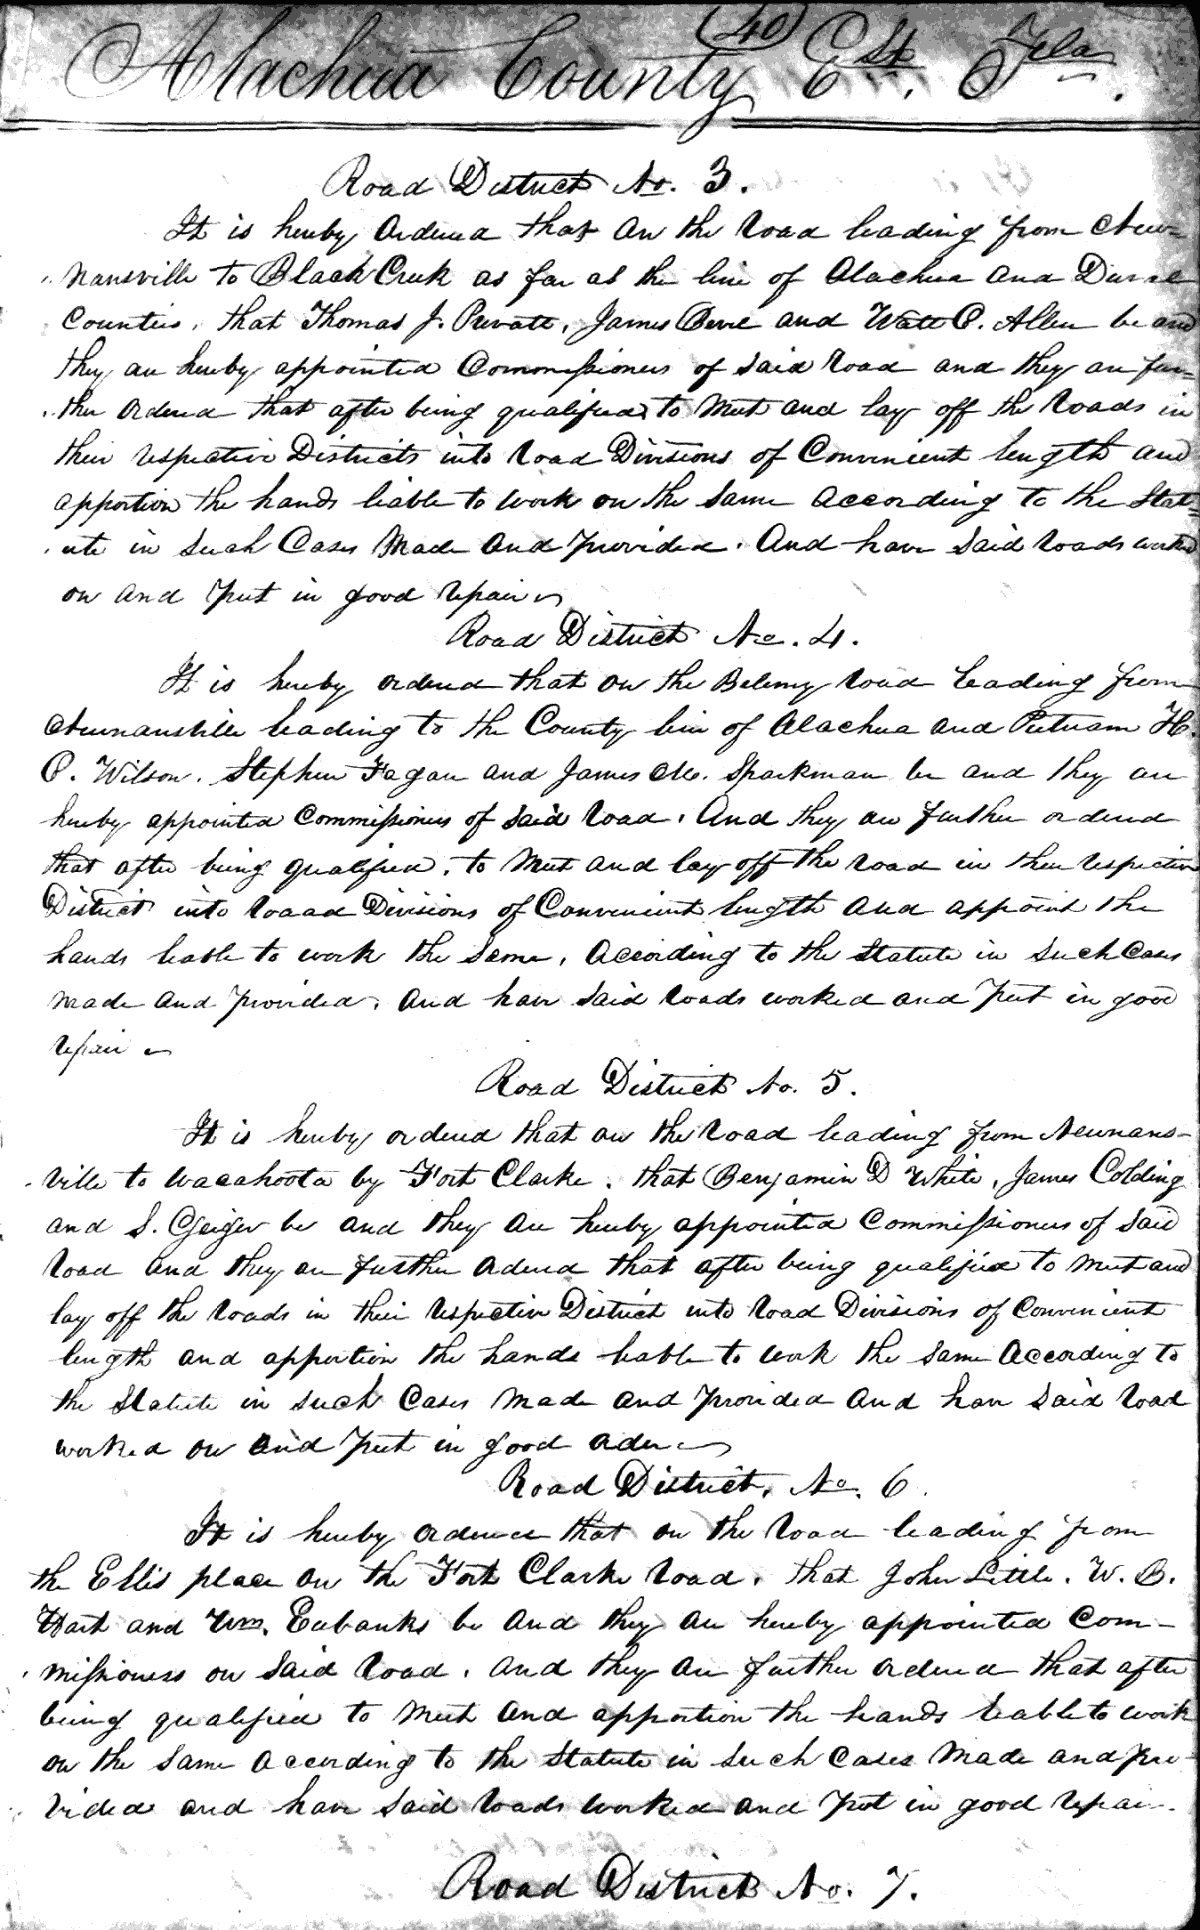 (40)
Alachua County Est. Fla.
Road District No. 3.
It is hereby Ordered that on the Road leading from New=
nansville to Black Creek as far as the line of Alachua and Duval
Counties, that Thomas J. Prevatt, James and Watt P. Allen be and
they are hereby appointed Commissioners of said Road and they are fur=
ther Ordered that after being qualified to Meet and lay off the Roads in
their respective Districts into Road Divisions of Convenient length and
apportion the hands liable to work on the same according to the Stat=
ute in such Cases Made and provided. And have said Roads worked
on and put in good repair
Road District No. 4.
It is hereby ordered that on the Belemy road leading from
Newnansville leading to the County line of Alachua and Putnam H.
P. Wilson. Stephen Fagan and James M. Sparkman be and they are
hereby appointed Commissioners of said Road. And they are further ordered
that after being qualified, to Meet and lay off the road in their respective
District into Roaad Divisions of Convenient length and appoint the
hands leable to work the Same, According to the Statute in such Cases
made and provided, and have said roads worked and put in good
repair
Road District No. 5.
It is hereby ordered that on the Road leading from Newnans-
ville to Wacahoota by Fort Clarke, that Benjamin D White, James Colding
and S. Geiger be and they are hereby appointed Commissioners of said
Road and they are further ordered that after being qualified to Meet and
lay off the roads in their respective District into road Divisions of Convenient
length and apportion the hands leable to work the same According to
the Statute in such Cases Made and provided and have said Road
worked on and put in good order
Road District, No. 6.
It is hereby ordered that on the Road leading from
the Ellis place on the Fort Clarke Road, that John Little. W. B.
Hart and Wm. Eubanks be and they are hereby appointed Com-
missioners on said Road, and they are further ordered that after
being qualified to Meet and apportion the hands leable to work
on the same according to the Statute in such Cases Made and pro-
vided and have said roads worked and put in good repair.
Road District No. 7.